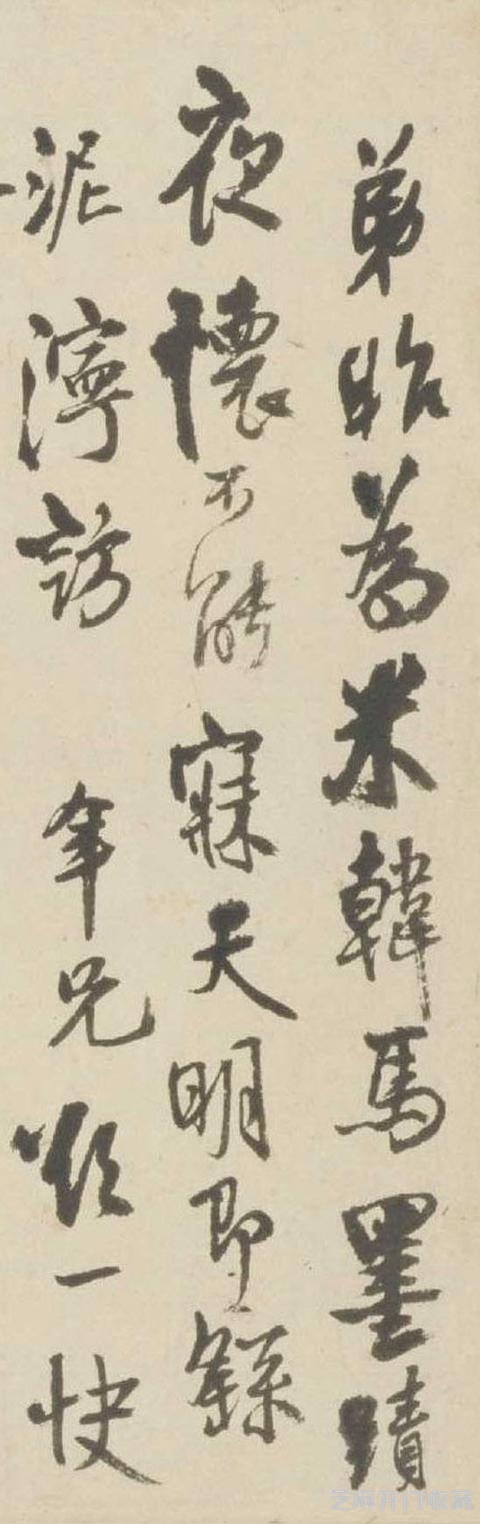 弟昨為米韓馬墨蹟
夜懷不能寐天明即繇
泥濘訪 年兄欲一快